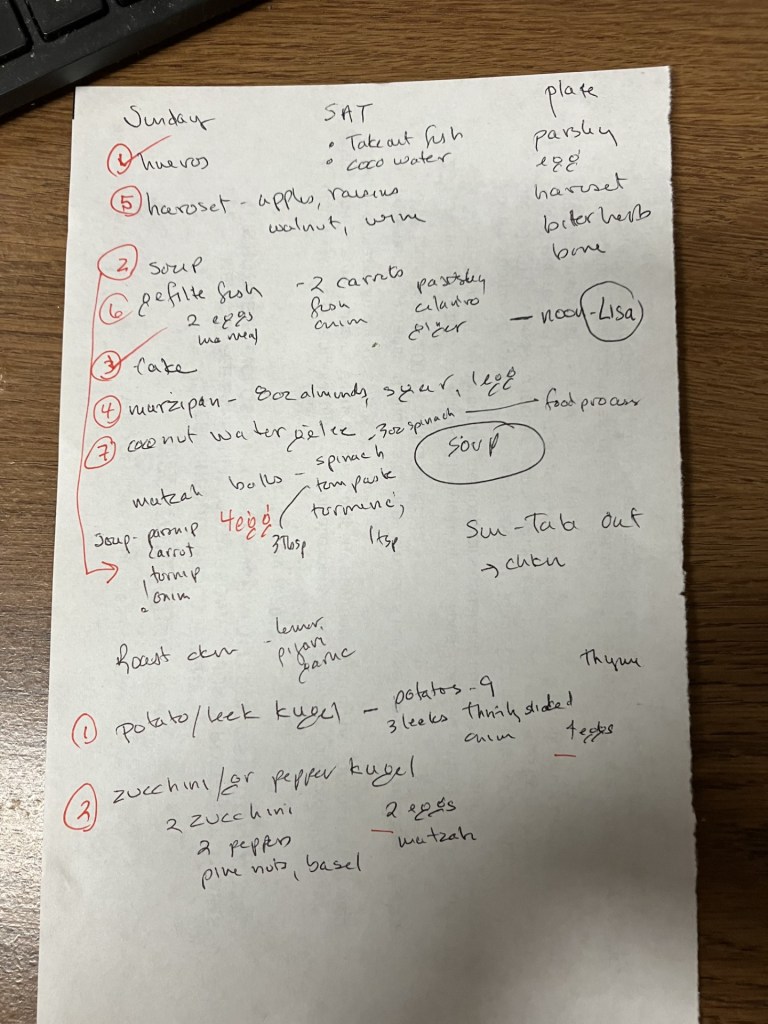 Sunday SAT plate
1 hueros • Takeout fish parsley
• coco water egg
5 haroset - apples, raisins haroset
walnut, wine biter herb
bone
2 soup
6 gefilte fish - 2 carrots parsley
2 eggs fish cilantro
onim - noon - Lisa
3 Cake
4 marzipan - 8oz almunds, sugar, 1 egg
7 coconut water gelee - 3oz spinach food process
soup
matzah balls - spinach
4 egg tom paste
3Tbsp turmeric, 1tsp
Soup - parsnip
carrot
turnip
onim
Sun - Take out
→ chkn
Roast ckn - lemon
garlic
thyme
1 potato/leek kugel - potatos - 9
3 leeks thinly sliced
onim 4 eggs
2 zucchini/or pepper kugel
2 zucchini 2 eggs
2 peppers matzah
pine nuts, basel